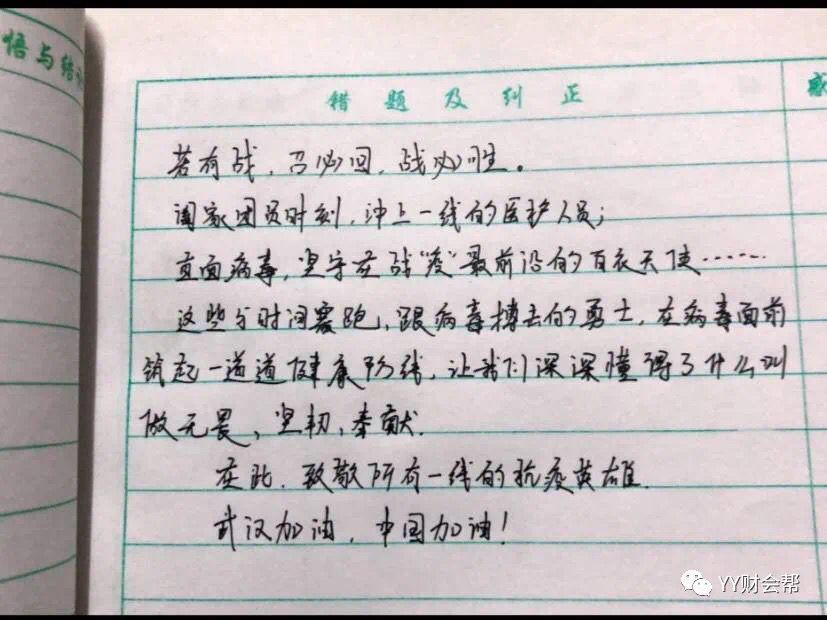 悟与结
错题及纠正
感
若有战，召必回，战必胜。
阖家团员时刻，冲上一线的医护人员；
直面病毒，坚守在战“疫”最前沿的百衣天使……
这些与时间赛跑，跟病毒搏击的勇士，在病毒面前
筑起一道道健康防线，让我们深深懂得了什么叫
做无畏，坚韧，奉献.
在此，致敬所有一线的抗疫英雄.
武汉加油，中国加油！
YY财会帮